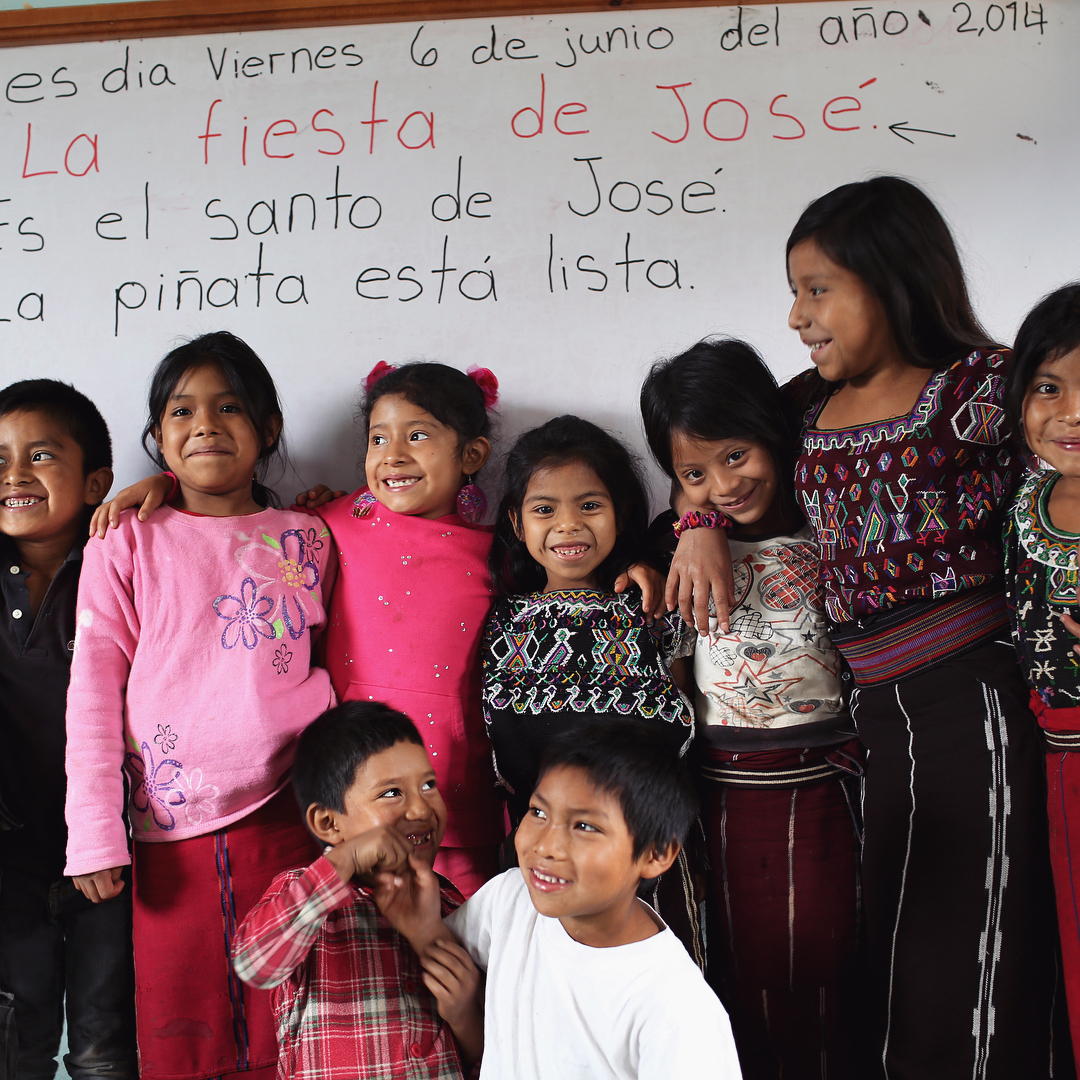 es dia Viernes 6 de junio del año 2,014
La fiesta de José.
Es el santo de José.
La piñata está lista.